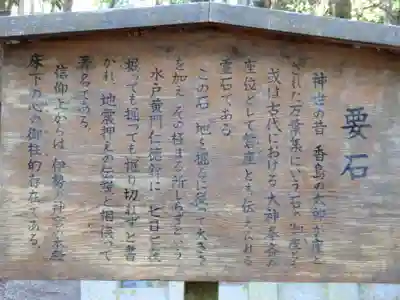 要石
神世の昔 香島の大神が座と
された万葉集にいう石の御座とも
或は古代における大神奉斎の
座位として磐座とも伝えられる
霊石である
この石 地を掘るに従って大きさ
を加え その極まる所しらずという
水戸黄門仁徳録に 七日七夜
掘っても掘っても掘り切れずと書
かれ、地震押えの伝説と相俟って
著名である。
信仰上からは 伊勢の神宮の本殿
床下の心の御柱的存在である。